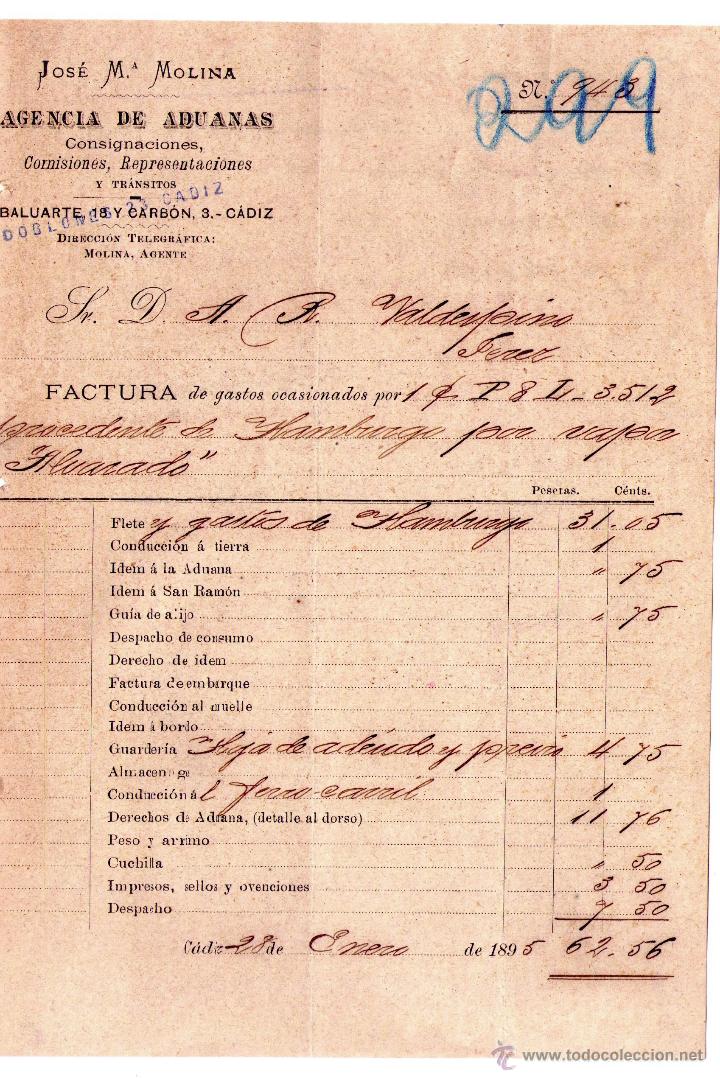 José M.ª Molina
AGENCIA DE ADUANAS
Consignaciones,
Comisiones, Representaciones
Y TRÁNSITOS
DOBLONES 23 CADIZ
BALUARTE, 18 Y CARBÓN, 3.- CÁDIZ
Dirección Telegráfica:
Molina, Agente
N.º 943
299
Sr. D. A. R. Valdespino
Jerez
FACTURA de gastos ocasionados por 1 P 8 L 3.512
procedente de Hamburgo por vapor
Alvarado"
Pesetas. Cénts.
Flete y gastos de Hamburgo 31.05
Conducción á tierra 1
Idem á la Aduana " 75
Idem á San Ramón
Guía de alijo " 75
Despacho de consumo
Derecho de idem
Factura de embarque
Conducción al muelle
Idem á bordo
Guardería Hoja de adeudo y previo 4 75
Almacenage
Conducción á l ferro-carril 1
Derechos de Aduana, (detalle al dorso) 11 76
Peso y arrimo
Cuchilla " 50
Impresos, sellos y ovenciones 3 50
Despacho 7 50
Cádiz 28 de Enero de 1895 62.56
todocoleccion
www.todocoleccion.net